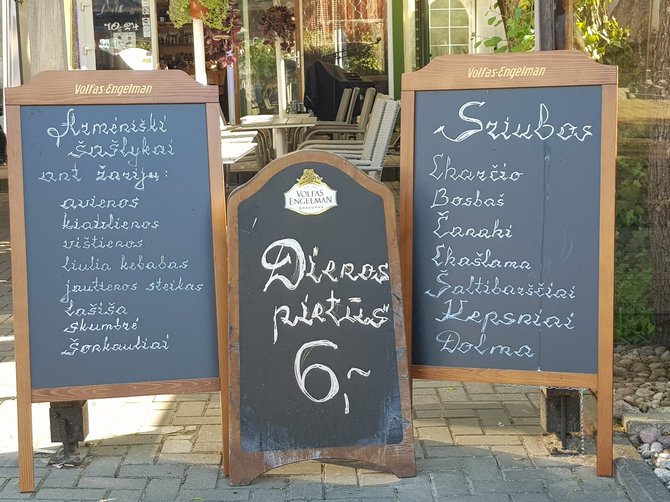 10-24
Volfas-Engelman
Armėniški
šašlykai
ant žarijų:
avienos
kiaulienos
vištienos
liulia kebabas
jautienos steikas
Lašiša
skumbrė
Šonkauliai
VOLFAS
ENGELMAN
Dienos
pietūs"
6,~
Volfas-Engelman
Sriubos
Charčio
Bosbaš
Čanahi
Chašlama
Šaltibarščiai
Kepsniai
Dolma